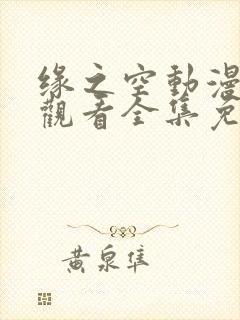 緣之空動漫
觀看全集免
黃泉隼